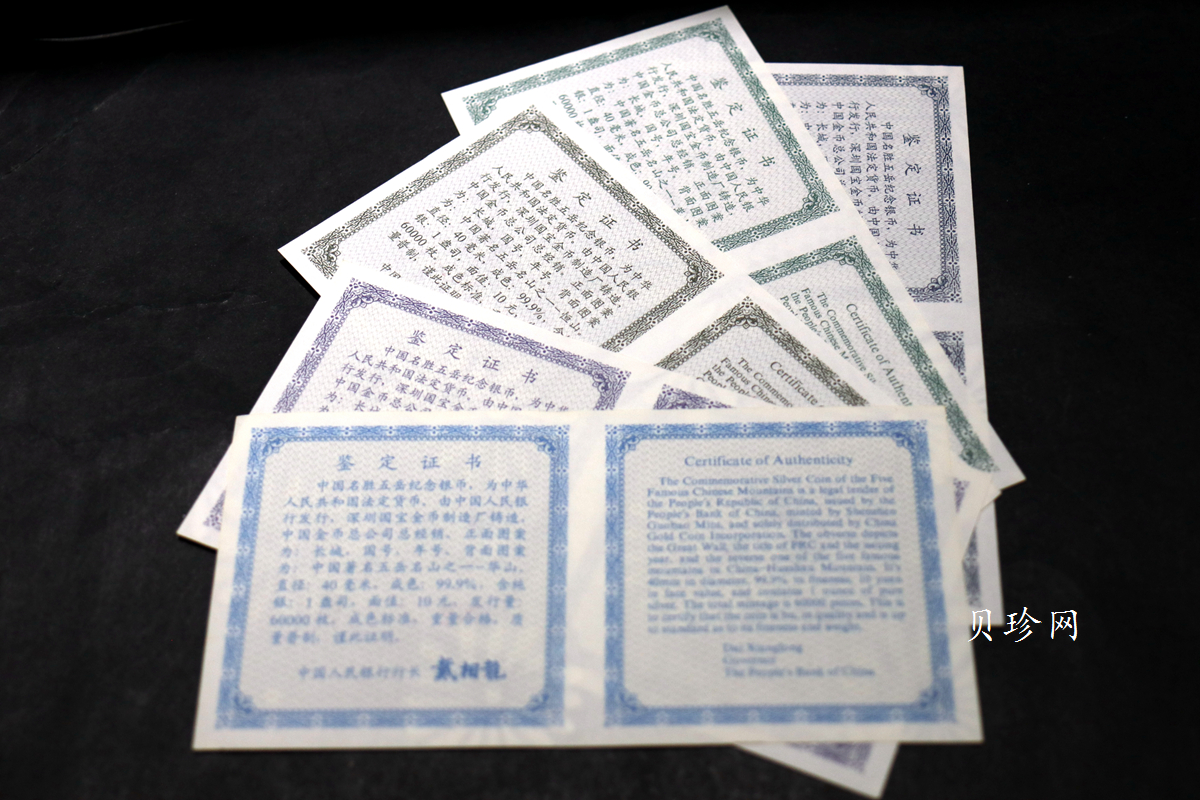 鉴定证书
中国名胜五岳纪念银币，为中
人民共和国法定货币，由中国
行发行，深圳国宝金币
中国金币总公司
为：长城，
鉴定证书
中国名胜五岳纪念银币，为中华
人民共和国法定货币，由中国人民银
行发行，深圳国宝金币制造厂铸造，
中国金币总公司总经销，正面图案
为：长城，国号，年号，背面图案
为：中国著名五岳名山之一
直径：40毫米，成色
银：1盎司
60000
Certificate of Authen
The Commemorative
Famous Chinese M
the People's
鉴定证书
中国名胜五岳纪念银币，为中华
人民共和国法定货币，由中国人民银
行发行，深圳国宝金币制造厂铸造，
中国金币总公司总经销，正面图案
为：长城，国号，年号，背面图案
为：中国著名五岳名山之一--恒山，
直径：40毫米，成色：99.9%，含
银：1盎司，面值：10元，
60000枚，成色标准
量普制，谨此证明
中国
Certificate
The Commemo
Famous Chi
the People
Peo
鉴定证书
中国名胜五岳纪念银币，为中华
人民共和国法定货币，由中国人
行发行，深圳国宝金币
中国金币总公
为：长城
鉴定证书
中国名胜五岳纪念银币，为中华
人民共和国法定货币，由中国人民银
行发行，深圳国宝金币制造厂铸造，
中国金币总公司总经销，正面图案
为：长城，国号，年号，背面图案
为：中国著名五岳名山之一--华山，
直径：40毫米，成色：99.9%，含纯
银：1盎司，面值：10元，发行量：
60000枚，成色标准，重量合格，质
量普制，谨此证明。
中国人民银行行长 戴相龍
Certificate of Authenticity
The Commemorative Silver Coin of the Five
Famous Chinese Mountains is a legal tender of
the People's Republic of China, issued by the
People's Bank of China, minted by Shenzhen
Guobao Mint, and solely distributed by China
Gold Coin Incorporation. The obverse depicts
the Great Wall, the title of PRC and the issuing
year, and the reverse one of the five famous
mountains in China--Huashan Mountain. It's
40mm in diameter, 99.9% in fineness, 10 yuan
in face value, and contains 1 ounce of pure
silver. The total mintage is 60000 pieces. This is
to certify that the coin is in quality and is up
to standard as to fineness and weight.
Dai Xianglong
Governor
The People's Bank of China
贝珍网